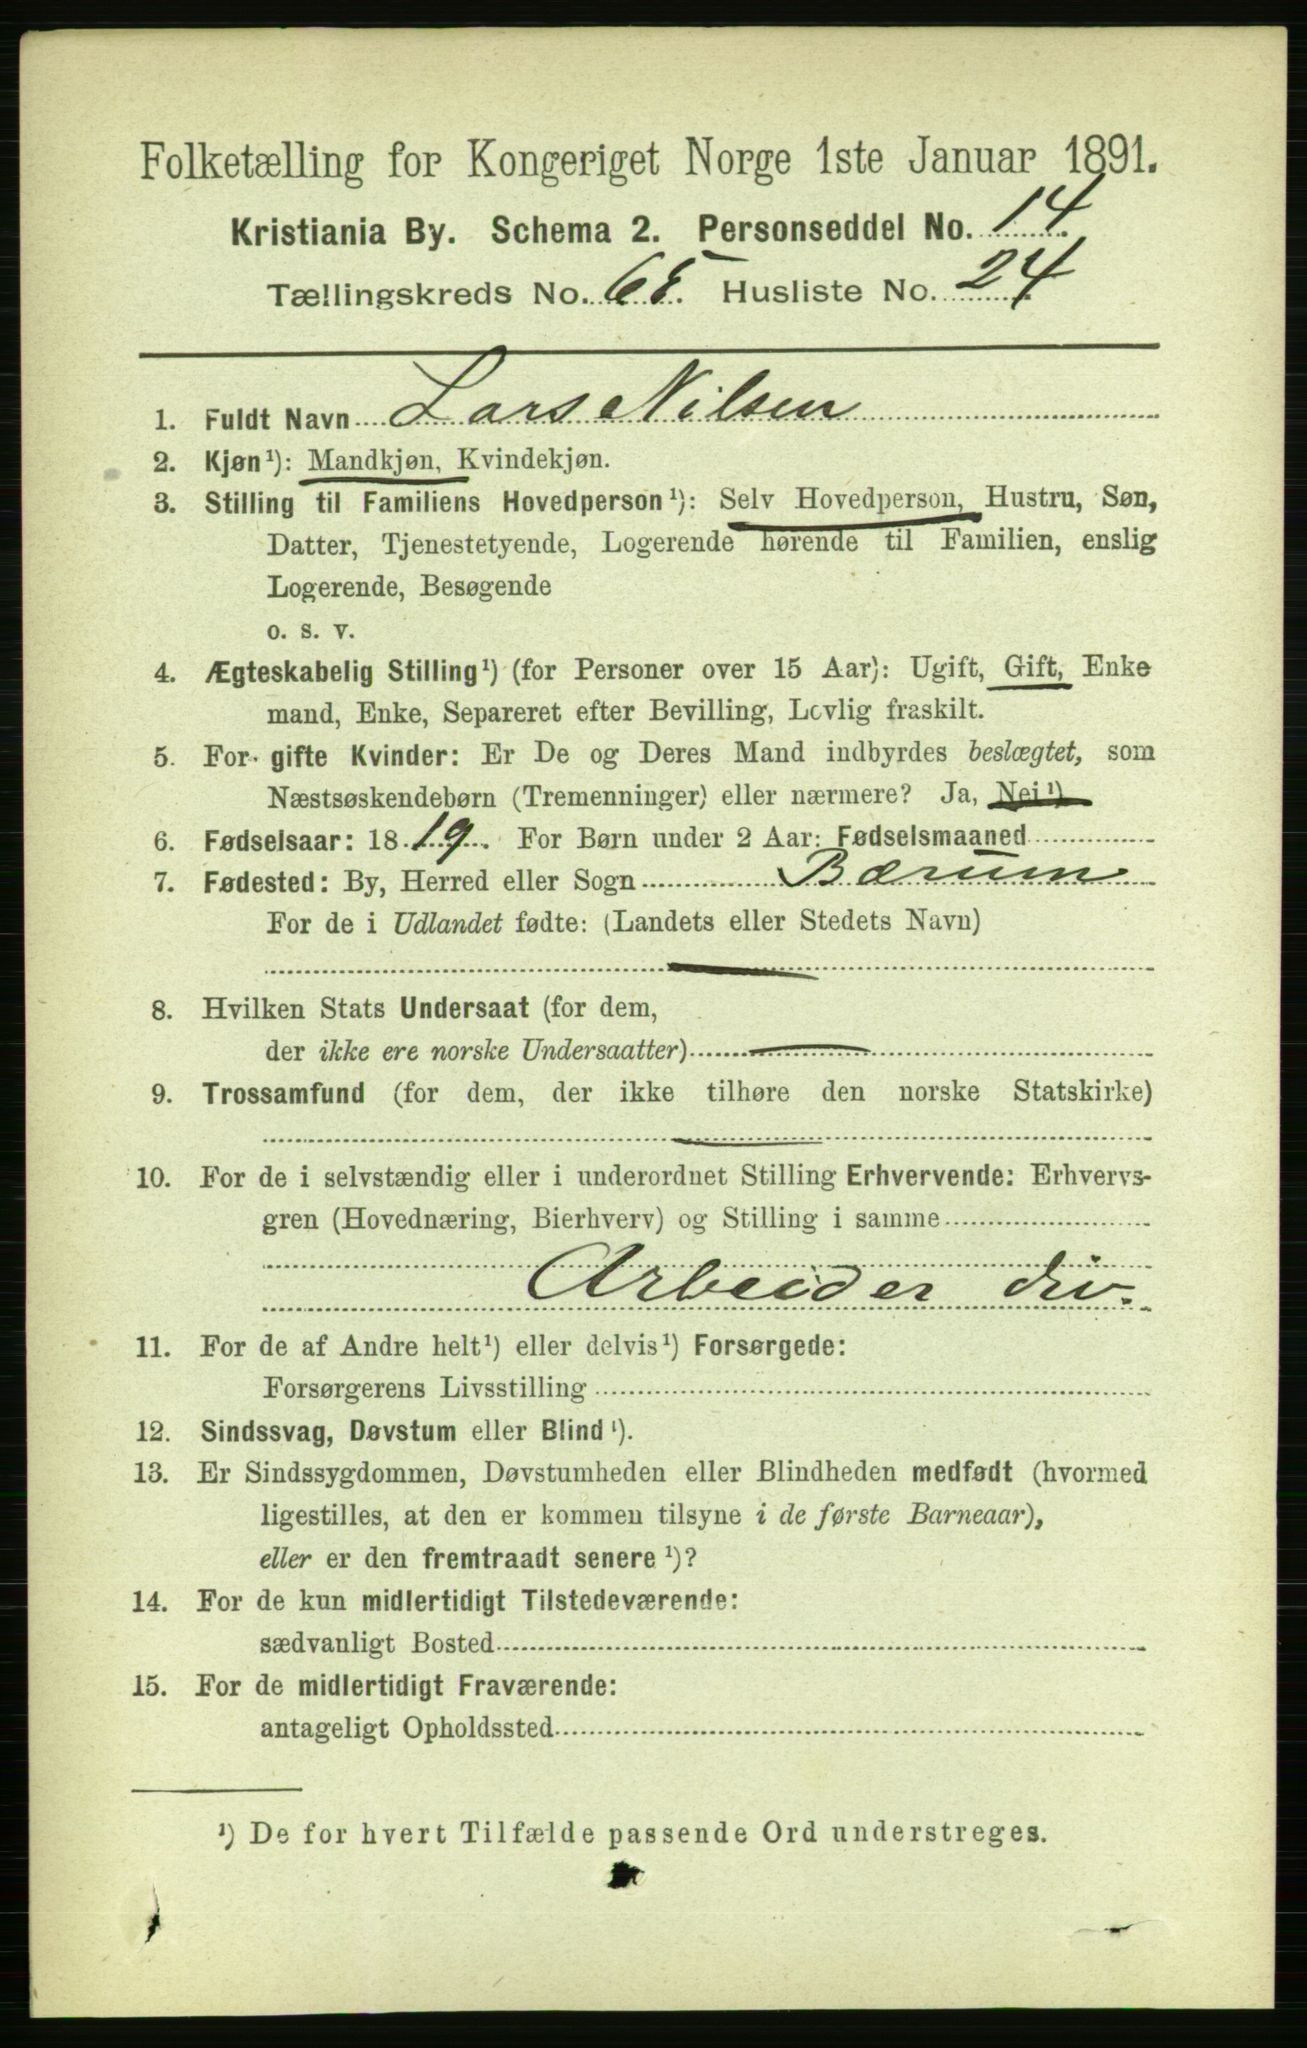 Folketælling for Kongeriget Norge 1ste Januar 1891.
Kristiania By. Schema 2. Personseddel No. 14.
Tællingskreds No. 68. Husliste No. 24.
1. Fuldt Navn Lars Nilsen
2. Kjøn¹): Mandkjøn, Kvindekjøn.
3. Stilling til Familiens Hovedperson¹): Selv Hovedperson, Hustru, Søn,
Datter, Tjenestetyende, Logerende hørende til Familien, enslig
Logerende, Besøgende
o. s. v.
4. Ægteskabelig Stilling¹) (for Personer over 15 Aar): Ugift, Gift, Enke
mand, Enke, Separeret efter Bevilling, Lovlig fraskilt.
5. For gifte Kvinder: Er De og Deres Mand indbyrdes beslægtet, som
Næstsøskendebørn (Tremenninger) eller nærmere? Ja, Nei¹)
6. Fødselsaar: 1819. For Børn under 2 Aar: Fødselsmaaned
7. Fødested: By, Herred eller Sogn Bærum
For de i Udlandet fødte: (Landets eller Stedets Navn)
8. Hvilken Stats Undersaat (for dem,
der ikke ere norske Undersaatter)
9. Trossamfund (for dem, der ikke tilhøre den norske Statskirke)
10. For de i selvstændig eller i underordnet Stilling Erhvervende: Erhvervs-
gren (Hovednæring, Bierhverv) og Stilling i samme
Arbeider div.
11. For de af Andre helt¹) eller delvis¹) Forsørgede:
Forsørgerens Livsstilling
12. Sindssvag, Døvstum eller Blind¹).
13. Er Sindssygdommen, Døvstumheden eller Blindheden medfødt (hvormed
ligestilles, at den er kommen tilsyne i de første Barneaar),
eller er den fremtraadt senere¹)?
14. For de kun midlertidigt Tilstedeværende:
sædvanligt Bosted
15. For de midlertidigt Fraværende:
antageligt Opholdssted
¹) De for hvert Tilfælde passende Ord understreges.